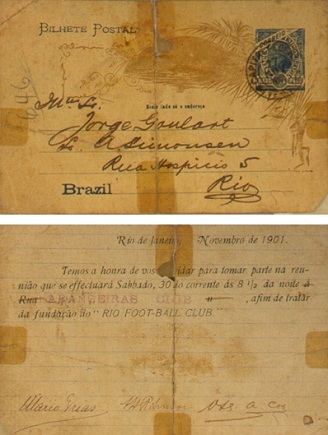 BILHETE POSTAL
646
N'este lado só o endereço
Jorge Goulart
L. A Simonsen
Rua Hospicio 5
Rio
Brazil
Rio de Janeiro, Novembro de 1901.
Temos a honra de vos dar para tomar parte na reu-
nião que se effectuará Sabbado, 30 do corrente ás 8 1/2 da noite á
Rua LARANGEIRAS CLUB , afim de tratar
da fundação do " RIO FOOT-BALL CLUB."
Mario Frias